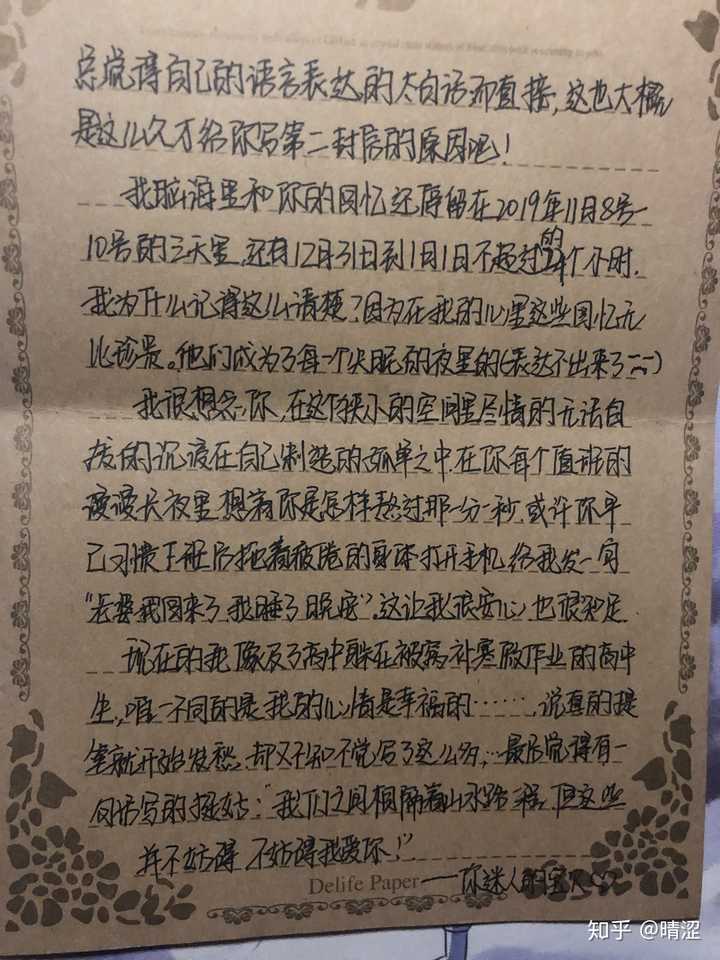 总觉得自己的语言表达的太白话却直接,这也大概
是这么久才给你写第二封信的原因吧!
我脑海里和你的回忆还停留在2019年11月8号-
10号的三天里,还有12月31日到1月1日不超过24个小时.
的
我为什么记得这么清楚?因为在我的心里这些回忆无
比珍贵。他们成为了每一个失眠的夜里的(表达不出来了
我很想念你,在这个狭小的空间里尽情的无法自
拔的沉浸在自己制造的孤单之中.在你每个值班的
漫漫长夜里想着你是怎样熬过那一分一秒.或许你早
已习惯下班后拖着疲惫的身体打开手机给我发一句
“老婆我回来了我睡了晚安”.这让我很安心也很知足
现在的我像极了高中躲在被窝补寒假作业的高中
生,唯一不同的是我的心情是幸福的……说真的提
笔就开始发愁.却又不知不觉写了这么多,…最后觉得有一
句话写的挺好:“我们之间相隔着山水路程,但这些
并不妨碍 不妨碍我爱你!”
Delife Paper
——你迷人的宝贝
知乎 @晴涩